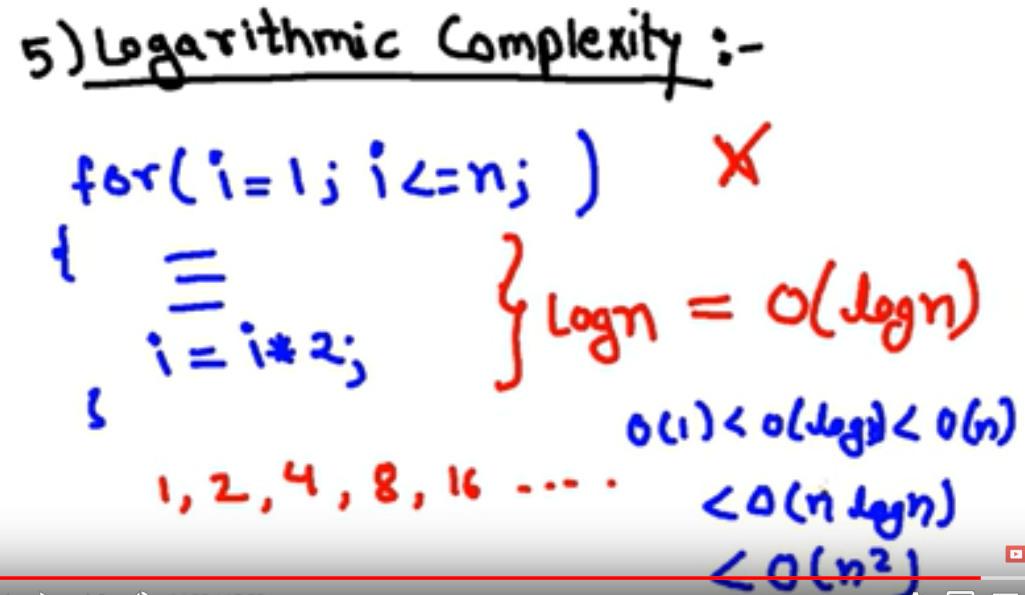 5) Logarithmic Complexity :-
for(i=1; i<=n; ) X
{
i = i*2;
} Logn = O(logn)
1, 2, 4, 8, 16 ----.
O(1) < O(logn) < O(n)
< O(n logn)
< O(n²)